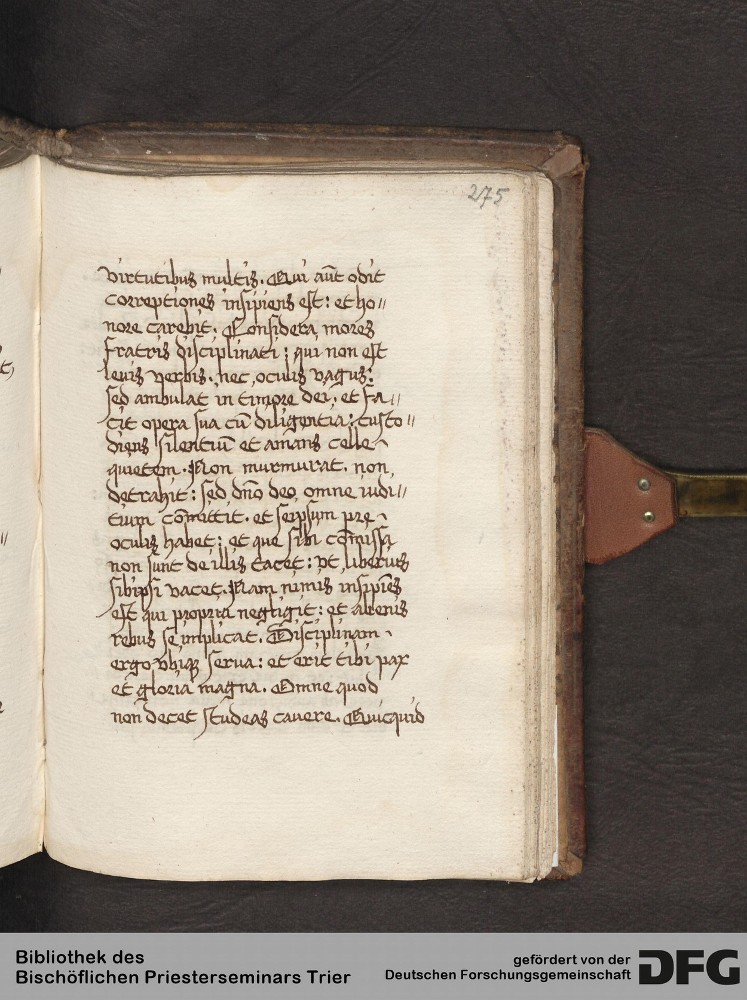 275
virtutibus multis. Qui aūt odit
correptiones insipiens est: et ho〃
nore carebit. Considera, mores
fratris disciplinati: qui non est
leuis verbis. nec, oculis vagus:
sed ambulat in timore dei. et fa〃
cit opera sua cū diligentia: custo〃
diens silentiū et amans celle
quietem. Non murmurat. non,
detrahit: sed dn̄o deo, omne iudi〃
tium com̄ittit. et seipsum pre
oculis habet: et que sibi com̄issa
non sunt de illis tacet: vt, liberius
sibiipsi vacet. Nam nimis insipiēs
est qui propria negligit: et alienis
rebus se implicat. Disciplinam
ergo vbiqꝫ serua: et erit tibi pax
et gloria magna. Omne quod
non decet studeas cauere. Quicquid
Bibliothek des
Bischöflichen Priesterseminars Trier
gefördert von der
Deutschen Forschungsgemeinschaft
DFG